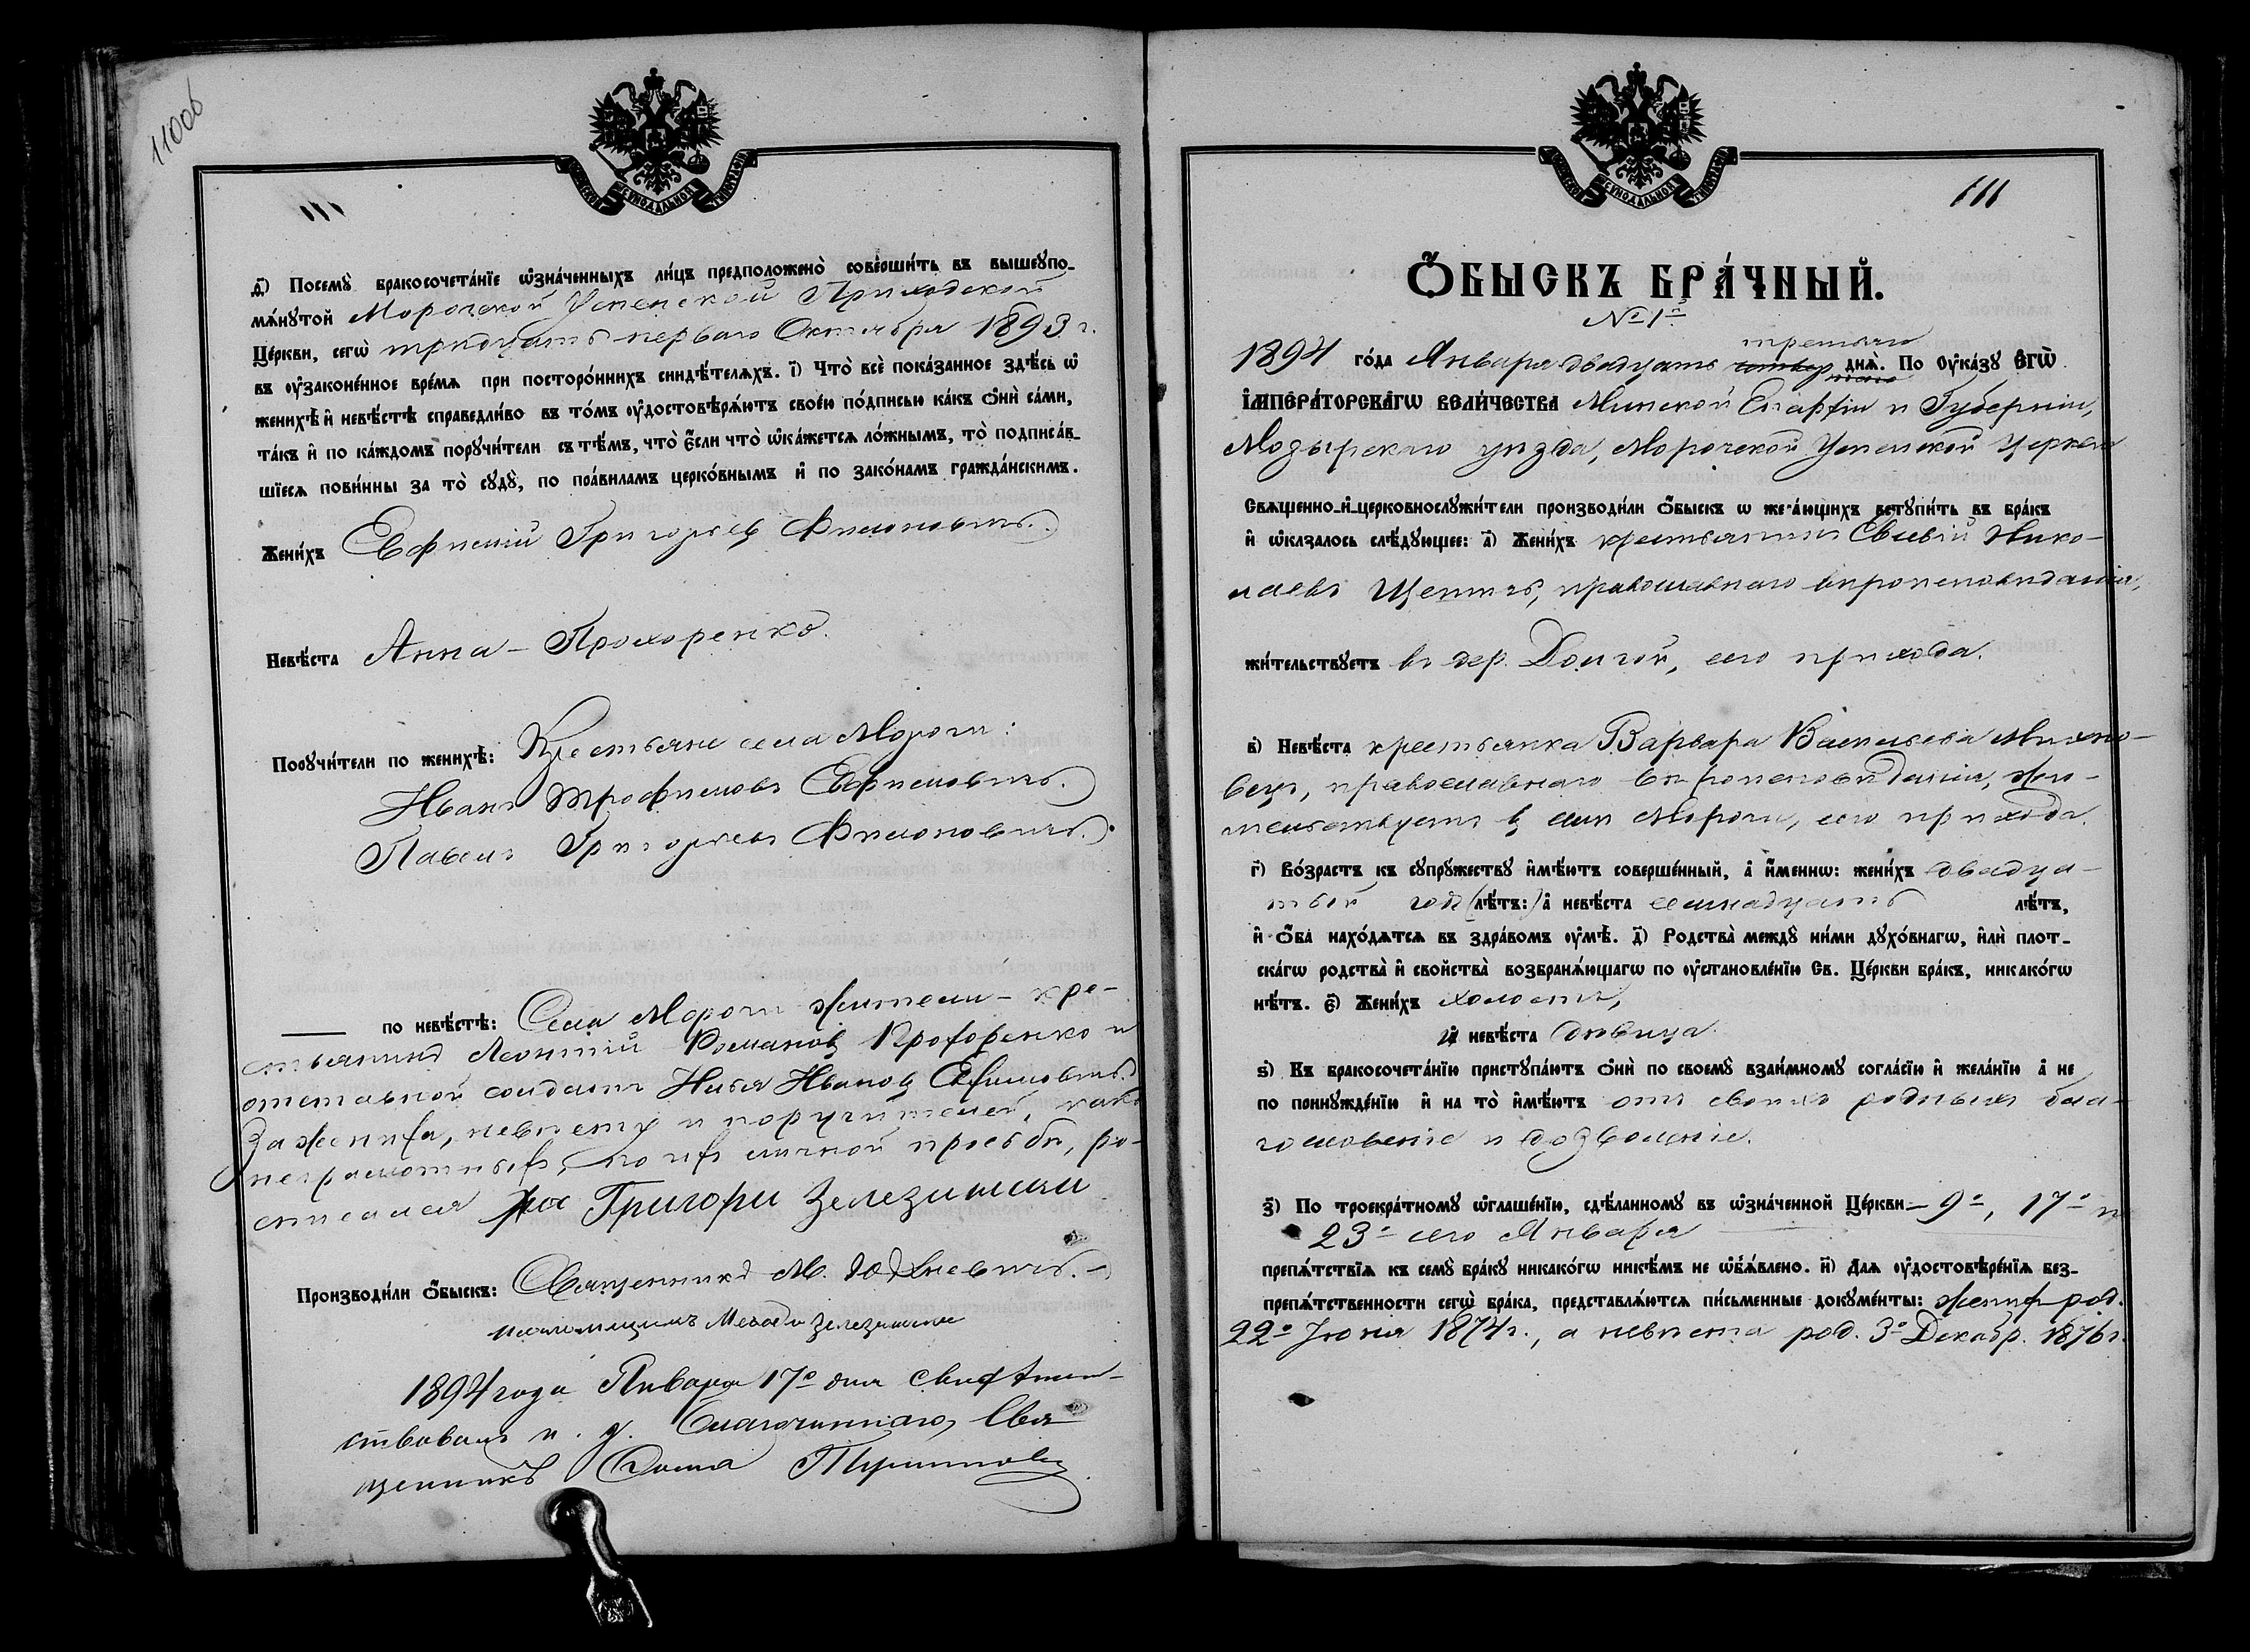 110об
СѴНОДАЛЬНОЙ
д҃) Посемꙋ̀ бракосочета́нїе ѡ҆зна́ченныхъ ли́цъ предположено̀ соверши́ть въ вышеꙋпо-
мѧ́нꙋтой Морочской Успенской Приходской
Це́ркви, сегѡ̀ тридцать перваго Октября 1893 г.
въ ᲂу҆законе́нное вре́мѧ при посторо́ннихъ свидѣ́телѧхъ. і҃) Что̀ всѐ пока́занное здѣ́сь ѡ҆
женихѣ̀ и҆ невѣ́стѣ справедли́во въ то́мъ ᲂу҆достовѣрѧ́ютъ свое́ю по́дписью ка́къ ѻ҆нѝ са́ми,
та́къ и҆ по ка́ждомъ порꙋчи́тели съ тѣ́мъ, что̀ є҆́сли что̀ ѡ҆ка́жетсѧ ло́жнымъ, то̀ подписа́в-
шїесѧ пови́нны за то̀ сꙋдꙋ̀, по пра́виламъ церко́внымъ и҆ по зако́намъ гражда́нскимъ.
Жени́хъ Евфимій Григорьевъ Филоновичъ.
Невѣ́ста Анна - Прохоренко.
Порꙋчи́тели по женихѣ̀: Крестьяне села Морочи:
Иванъ Трофимовъ Ефимовичъ.
Павелъ Григорьевъ Филоновичъ.
по невѣ́стѣ: Села Морочи жители - кре-
стьянинъ Леонтій Романовъ Прохоренко и
отставной солдатъ Илья Ивановъ Ефимовичъ.
За жениха, невѣсту и поручителей, какъ
неграмотныхъ, по ихъ личной просьбѣ, ро-
списался Григори Зелезински
Производи́ли ѻ҆́быскъ: Священникъ М. Юхневичъ. -
псаломщикъ Зелезински
1894 года Января 17го дня свидѣтель-
ствовалъ и. д. Благочиннаго, Свя-
щенникъ Ѳома
111
СѴНОДАЛЬНОЙ
Ѻ҆БЫСКЪ БРА́ЧНЫЙ.
№ 1й
третьяго
1894 го́да Января двадцать днѧ̀. По ᲂу҆ка́зꙋ Є҆ГѠ̀
І҆МПЕРА́ТОРСКАГѠ ВЕЛИ́ЧЕСТВА Минской Епархіи и Губерніи,
Мозырскаго уѣзда, Морочской Успенской Церкви
Свѧщенно-и҆-церковнослꙋжи́тели производи́ли ѻ҆́быскъ ѡ жела́ющихъ встꙋпи́ть въ бра́къ
и҆ ѡ҆казалось слѣ́дꙋющее: а҃) Жени́хъ крестьянинъ Евсевій Нико-
лаевъ православнаго вѣроисповѣданія,
жи́тельствꙋетъ въ дер. Долгой, сего прихода.
в҃) Невѣ́ста крестьянка Варвара Васильева Михно-
вецъ, православнаго вѣроисповѣданія, жи-
тельствуетъ въ селѣ Морочи, сего прихода.
г҃) Во́зрастъ къ сꙋпрꙋ́жествꙋ и҆мѣ́ютъ соверше́нный, а҆ и҆́менно: жени́хъ двадца-
тый годъ (лѣ́тъ:) а҆ невѣ́ста семнадцать лѣ́тъ,
и҆ ѻ҆́ба нахо́дѧтсѧ въ здра́вомъ ᲂу҆мѣ̀. д҃) Родства̀ междꙋ̀ ни́ми дꙋхо́внагѡ, и҆лѝ плот-
ска́гѡ родства̀ и҆ свойства̀ возбранѧ́ющагѡ по ᲂу҆становле́нїю Св. Це́ркви бра́къ, никако́гѡ
нѣ́тъ. є҃) Жени́хъ холостъ,
и҆ невѣ́ста дѣвица.
ѕ҃) Къ бракосочета́нїю пристꙋпа́ютъ ѻ҆нѝ по своемꙋ̀ взаи́мномꙋ согла́сїю и҆ жела́нїю а҆ не
по принꙋжде́нїю и҆ на то̀ и҆мѣ́ютъ отъ своихъ родныхъ бла-
гословеніе и дозволеніе.
з҃) По троекра́тномꙋ ѡ҆глаше́нїю, сдѣ́ланномꙋ въ ѡ҆зна́ченной Це́ркви - 9о, 17о и
23о сего Января
препѧ́тствїѧ къ семꙋ̀ бра́кꙋ никако́гѡ никѣ́мъ не ѡ҆б̾ѧ́влено. и҃) Для ᲂу҆достовѣре́нїѧ без-
препѧ́тственности сегѡ̀ бра́ка, представлѧ́ютсѧ пи́сьменные докꙋме́нты: женихъ род.
22о Іюня 1874 г., а невѣста род. 3о Декабр. 1876 г.